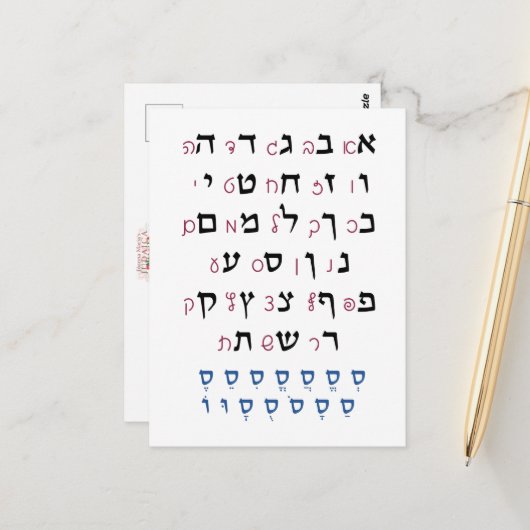 א א ב ב ג ג ד ד ה ה
ו ו ז ז ח ח ט ט י י
כ כ ך ך ל ל מ מ ם ם
נ נ ן ן ס ס ע ע
פ פ ף ף צ צ ץ ץ ק ק
ר ר ש ש ת ת
סְ סֱ סֲ סֳ סִ סֵ סֶ
סַ סָ סֹ סֻ סָ וּ וֹ
JUDAICA